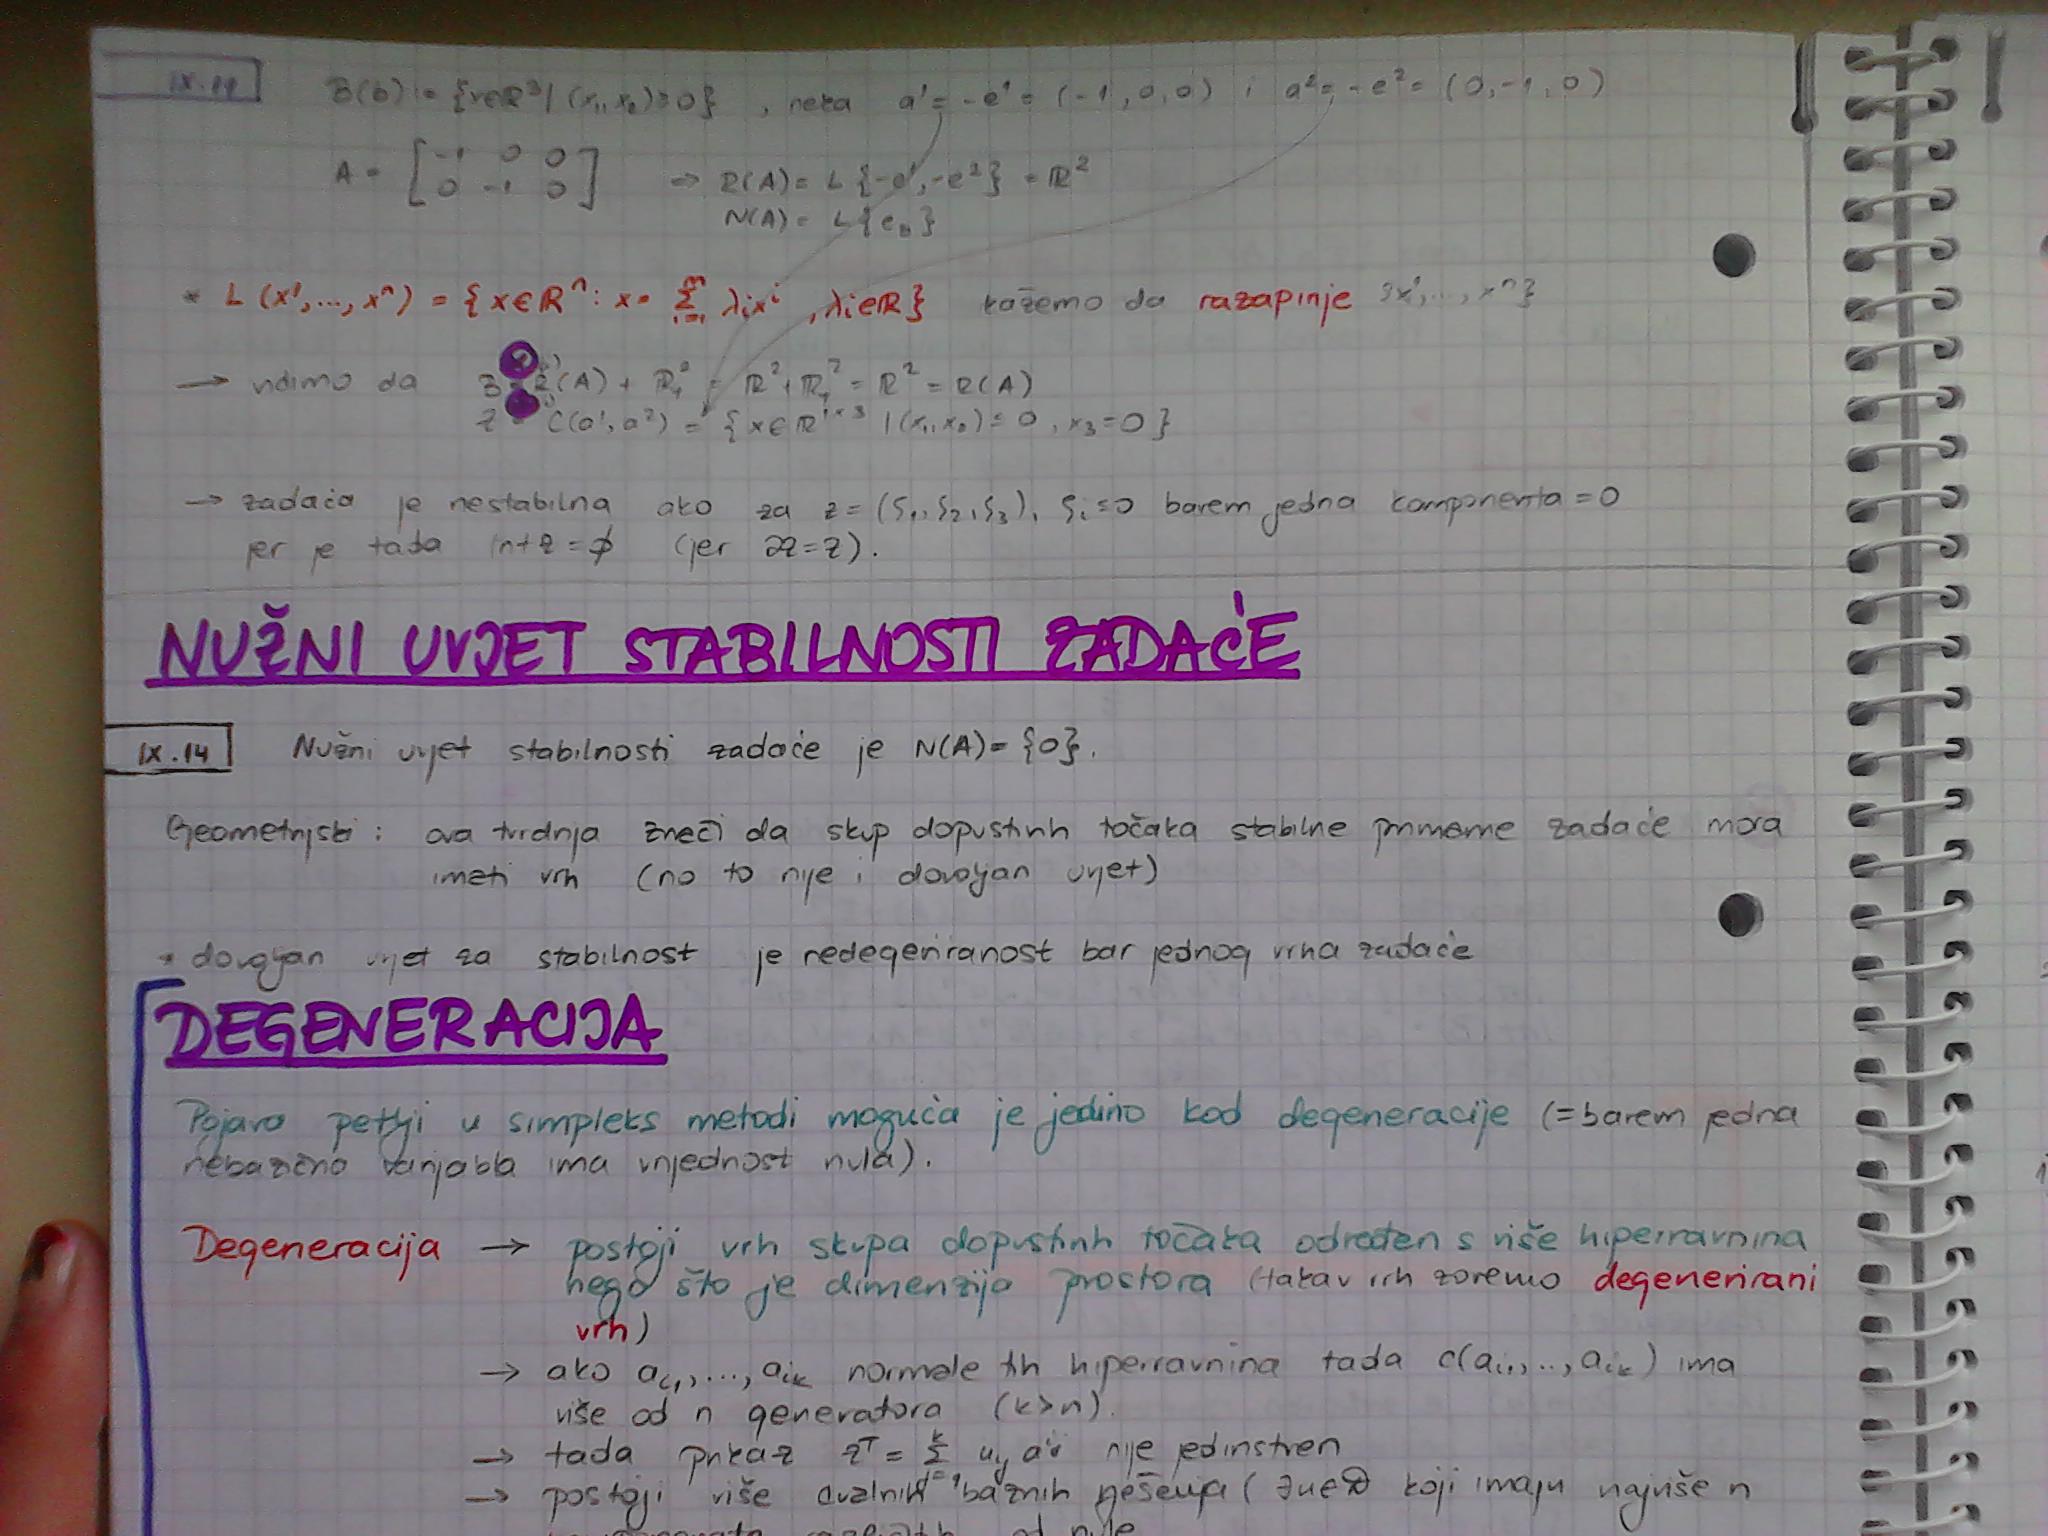 IX.14 B(b) := {x∈R³ | (x₁,x₂) ≥ 0} , neka a¹ = -e¹ = (-1, 0, 0) i a² = -e² = (0, -1, 0)
A = [-1 0 0
0 -1 0] → R(A) = L{-e¹, -e²} = R²
N(A) = L{e₃}
* L(x¹, ..., xⁿ) = {x∈Rⁿ : x = Σ λᵢxⁱ , λᵢ∈R} kažemo da razapinje {x¹, ..., xⁿ}
→ vidimo da B = R(A) + R₊² = R² + R₊² = R² = R(A)
Z = C(a¹, a²) = {x∈R¹ˣ³ | (x₁,x₂) ≤ 0 , x₃=0}
→ zadaća je nestabilna ako za z = (ζ₁, ζ₂, ζ₃), ζᵢ≤0 barem jedna komponenta = 0
jer je tada int Z = ∅ (jer ∂Z=Z).
NUŽNI UVJET STABILNOSTI ZADAĆE
IX.14 Nužni uvjet stabilnosti zadaće je N(A) = {0}.
Geometrijski : ova tvrdnja znači da skup dopustivih točaka stabilne primarne zadaće mora
imati vrh (no to nije i dovoljan uvjet)
* dovoljan uvjet za stabilnost je nedegeriranost bar jednog vrha zadaće
DEGENERACIJA
Pojava petlji u simpleks metodi moguća je jedino kod degeneracije (=barem jedna
nebazična varijabla ima vrijednost nula).
Degeneracija → postoji vrh skupa dopustivih točaka određen s više hiperravnina
nego što je dimenzija prostora (takav vrh zovemo degenerirani
vrh)
→ ako aᵢ₁, ..., aᵢₖ normale tih hiperravnina tada C(aᵢ₁, .., aᵢₖ) ima
više od n generatora (k>n).
→ tada prikaz zᵀ = Σ uᵢⱼ aⁱʲ nije jedinstven
→ postoji više dualnih baznih rješenja ( ∃u∈D koji imaju najviše n